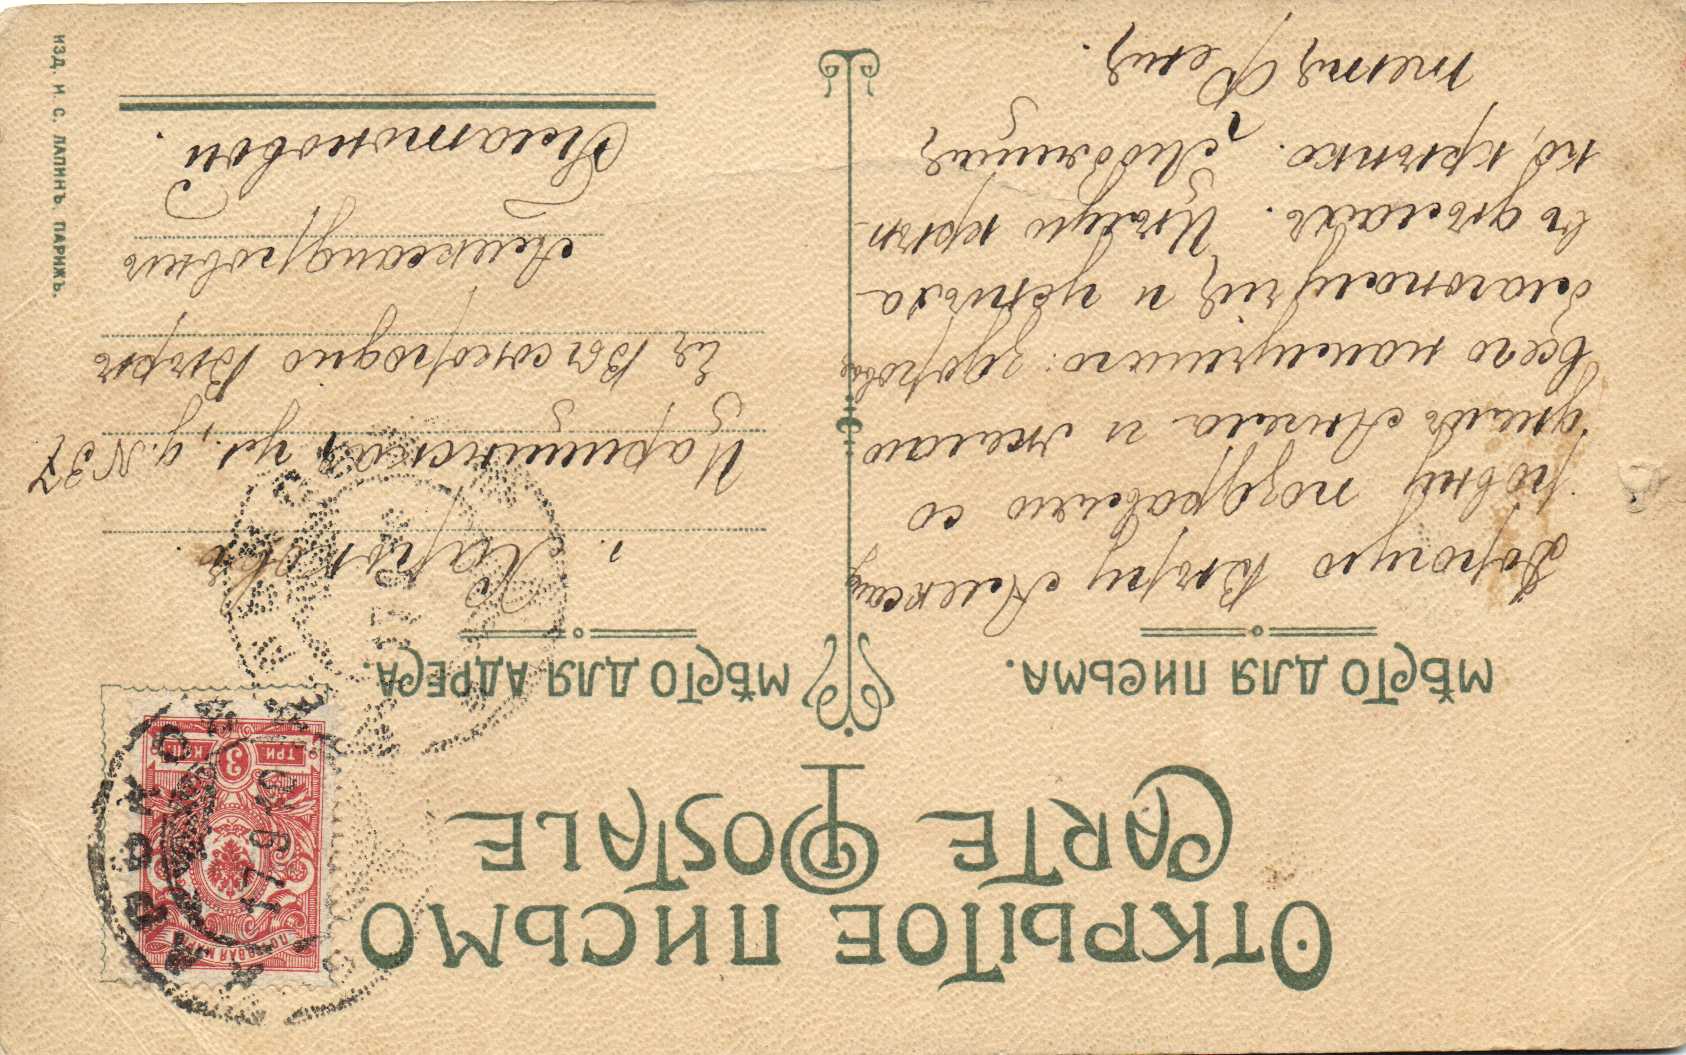 ОТКРЫТОЕ ПИСЬМО
CARTE POSTALE
МѢСТО ДЛЯ ПИСЬМА.
Дорогую Вѣру Александ
ровну поздравляю со
днемъ Ангела и желаю
всего наилучшаго: здоровья
благополучія и успѣха
въ дѣлахъ. Цѣлую крѣп-
ко, крѣпко. Любящая
тетя Феня.
МѢСТО ДЛЯ АДРЕСА.
г. Харьковъ
Царицынская ул., д. № 37
Ея Высокородію Вѣрѣ
Александровнѣ
Платоновой.
ИЗД. И. С. ЛАПИНЪ. ПАРИЖЪ.
ПОЧТОВАЯ МАРКА
ТРИ 3 КОП.
МОСКВА